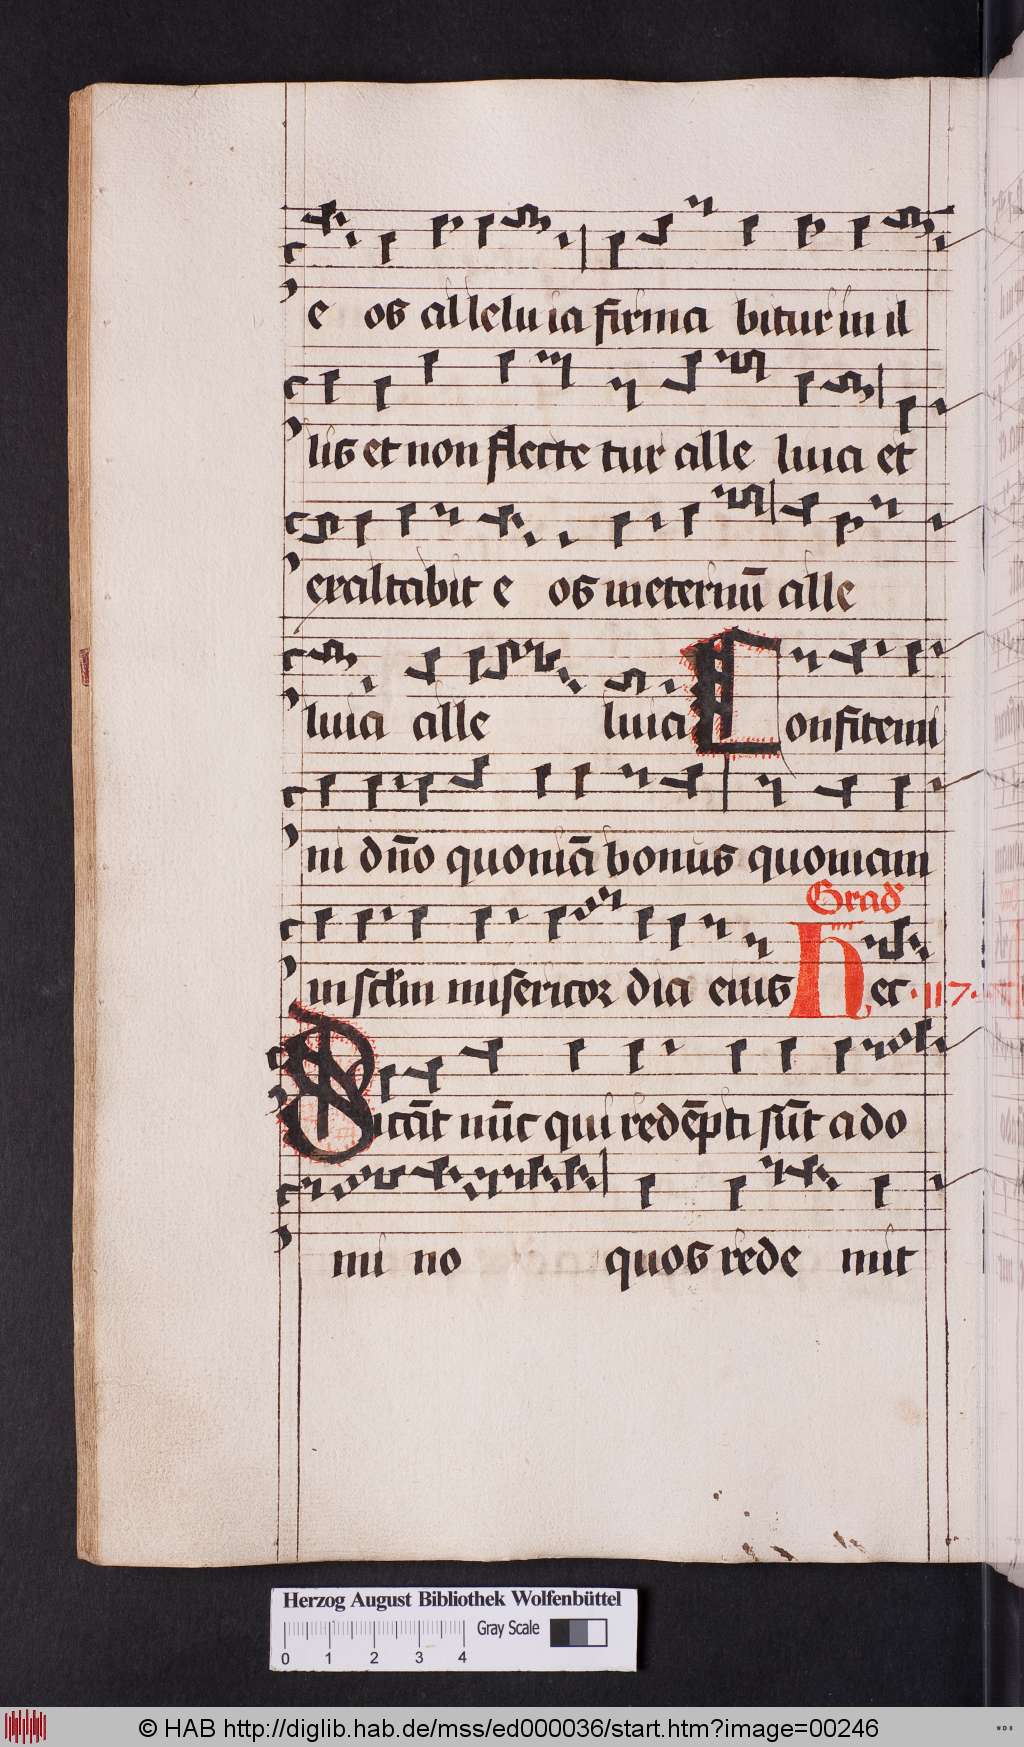 e os alleluia firma bitur in il
lis et non flecte tur alle luia et
exaltabit e os ineternū alle
luia alle luia Confitemi
ni dn̄o quoniā bonus quoniam
Grad̛
in sc̄lm misericor dia eius Hec ·117·
Dicāt nūc qui redēpti sūt a do
mi no quos rede mit
Herzog August Bibliothek Wolfenbüttel
Gray Scale
0 1 2 3 4
© HAB http://diglib.hab.de/mss/ed000036/start.htm?image=00246